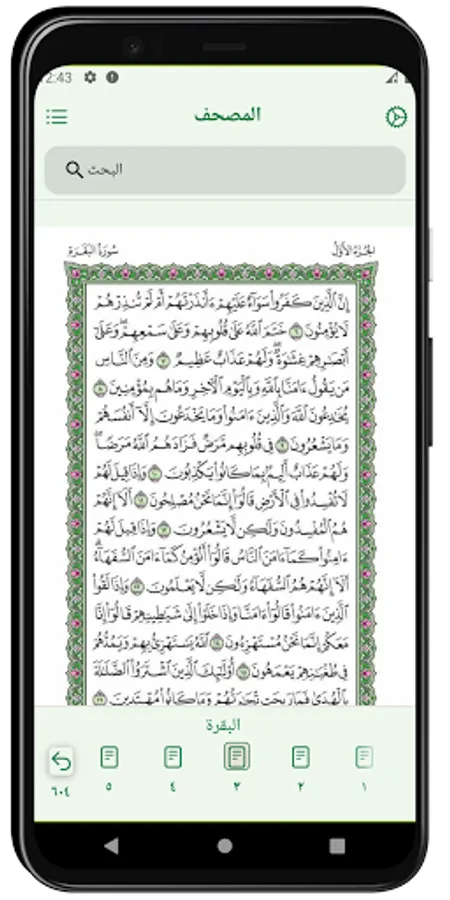 2:43
المصحف
البحث
الجزء الأول
سورة البقرة
إِنَّ ٱلَّذِينَ كَفَرُوا۟ سَوَآءٌ عَلَيْهِمْ ءَأَنذَرْتَهُمْ أَمْ لَمْ تُنذِرْهُمْ
لَا يُؤْمِنُونَ ٦ خَتَمَ ٱللَّهُ عَلَىٰ قُلُوبِهِمْ وَعَلَىٰ سَمْعِهِمْ ۖ وَعَلَىٰٓ
أَبْصَٰرِهِمْ غِشَٰوَةٌ ۖ وَلَهُمْ عَذَابٌ عَظِيمٌ ٧ وَمِنَ ٱلنَّاسِ
مَن يَقُولُ ءَامَنَّا بِٱللَّهِ وَبِٱلْيَوْمِ ٱلْـَٔاخِرِ وَمَا هُم بِمُؤْمِنِينَ ٨
يُخَٰدِعُونَ ٱللَّهَ وَٱلَّذِينَ ءَامَنُوا۟ وَمَا يَخْدَعُونَ إِلَّآ أَنفُسَهُمْ
وَمَا يَشْعُرُونَ ٩ فِى قُلُوبِهِم مَّرَضٌ فَزَادَهُمُ ٱللَّهُ مَرَضًا ۖ
وَلَهُمْ عَذَابٌ أَلِيمٌۢ بِمَا كَانُوا۟ يَكْذِبُونَ ١٠ وَإِذَا قِيلَ لَهُمْ
لَا تُفْسِدُوا۟ فِى ٱلْأَرْضِ قَالُوٓا۟ إِنَّمَا نَحْنُ مُصْلِحُونَ ١١ أَلَآ إِنَّهُمْ
هُمُ ٱلْمُفْسِدُونَ وَلَٰكِن لَّا يَشْعُرُونَ ١٢ وَإِذَا قِيلَ لَهُمْ
ءَامِنُوا۟ كَمَآ ءَامَنَ ٱلنَّاسُ قَالُوٓا۟ أَنُؤْمِنُ كَمَآ ءَامَنَ ٱلسُّفَهَآءُ ۗ
أَلَآ إِنَّهُمْ هُمُ ٱلسُّفَهَآءُ وَلَٰكِن لَّا يَعْلَمُونَ ١٣ وَإِذَا لَقُوا۟
ٱلَّذِينَ ءَامَنُوا۟ قَالُوٓا۟ ءَامَنَّا وَإِذَا خَلَوْا۟ إِلَىٰ شَيَٰطِينِهِمْ قَالُوٓا۟ إِنَّا
مَعَكُمْ إِنَّمَا نَحْنُ مُسْتَهْزِءُونَ ١٤ ٱللَّهُ يَسْتَهْزِئُ بِهِمْ وَيَمُدُّهُمْ
فِى طُغْيَٰنِهِمْ يَعْمَهُونَ ١٥ أُو۟لَٰٓئِكَ ٱلَّذِينَ ٱشْتَرَوُا۟ ٱلضَّلَٰلَةَ
بِٱلْهُدَىٰ فَمَا رَبِحَت تِّجَٰرَتُهُمْ وَمَا كَانُوا۟ مُهْتَدِينَ ١٦
البقرة
١ ٢ ٣ ٤ ٥ ٦٠٤